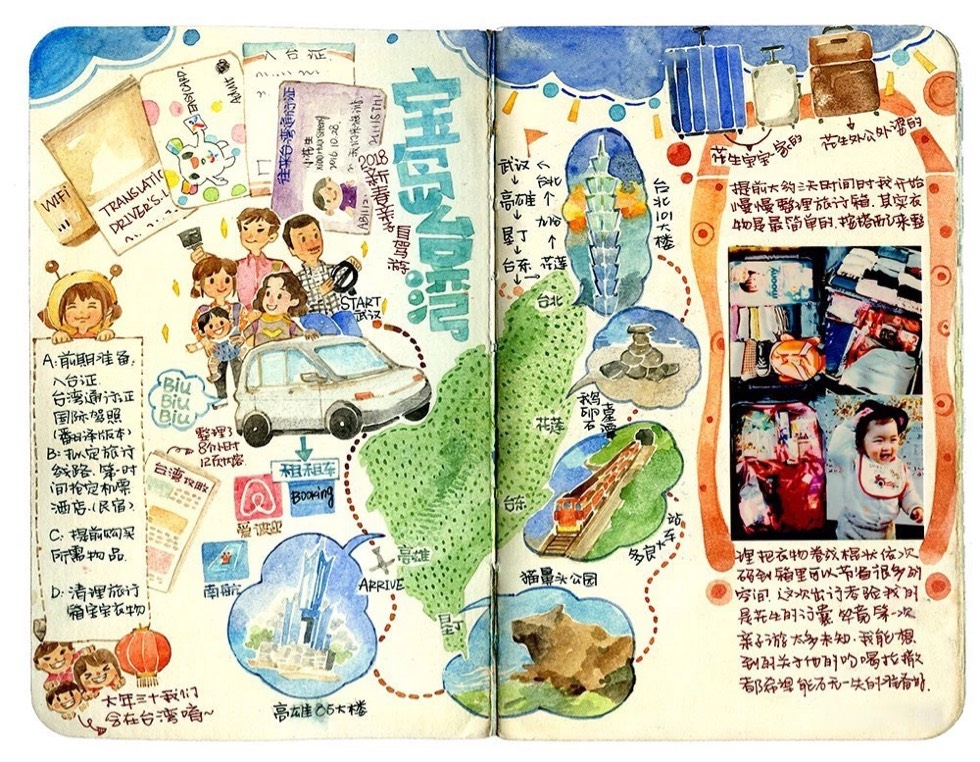 入台证
ADMIT
WIFI
TRANSLATIO
DRIVER'S.L
往来台湾通行证
2016.10.28
2018
新春亲子
自驾游
START
武汉
A:前期准备.
入台证.
台湾通行证
国际驾照
(翻译版本)
B:拟定旅行
线路.第一时
间抢定机票
酒店.(民宿)
C:提前购买
所需物品
D:清理旅行
箱宝宝衣物
Biu
Biu
Biu
整理了
8个小时
12页内容.
台湾攻略
租租车
Booking
爱彼迎
南航
高雄85大楼
大年三十我们
会在台湾唷~
ARRIVE
高雄
垦丁
台东
花莲
台北
武汉
高雄
垦丁
台东
花莲
台北
台北101大楼
鹅卵石
多良火车站
猫鼻头公园
花生宝宝家的
花生外公外婆的
提前大约三天时间时我开始
慢慢整理旅行箱.其实衣
物是最简单的.按搭配来整
理把衣物卷成棍状依次
码到箱里可以节省很多的
空间.这次出行考验我的
是花生的行囊毕竟第一次
亲子游太多未知.我能想
到的关于他的吃喝拉撒
都希望能万无一失的准备好.